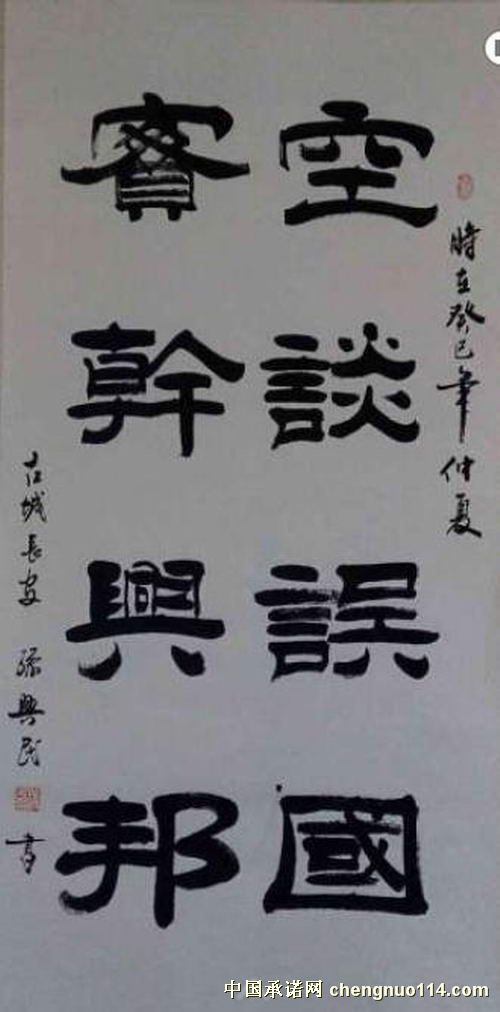 時在癸巳年仲夏
空談誤國
實幹興邦
古城長安 孫興民 書
中国承诺网 chengnuo114.com